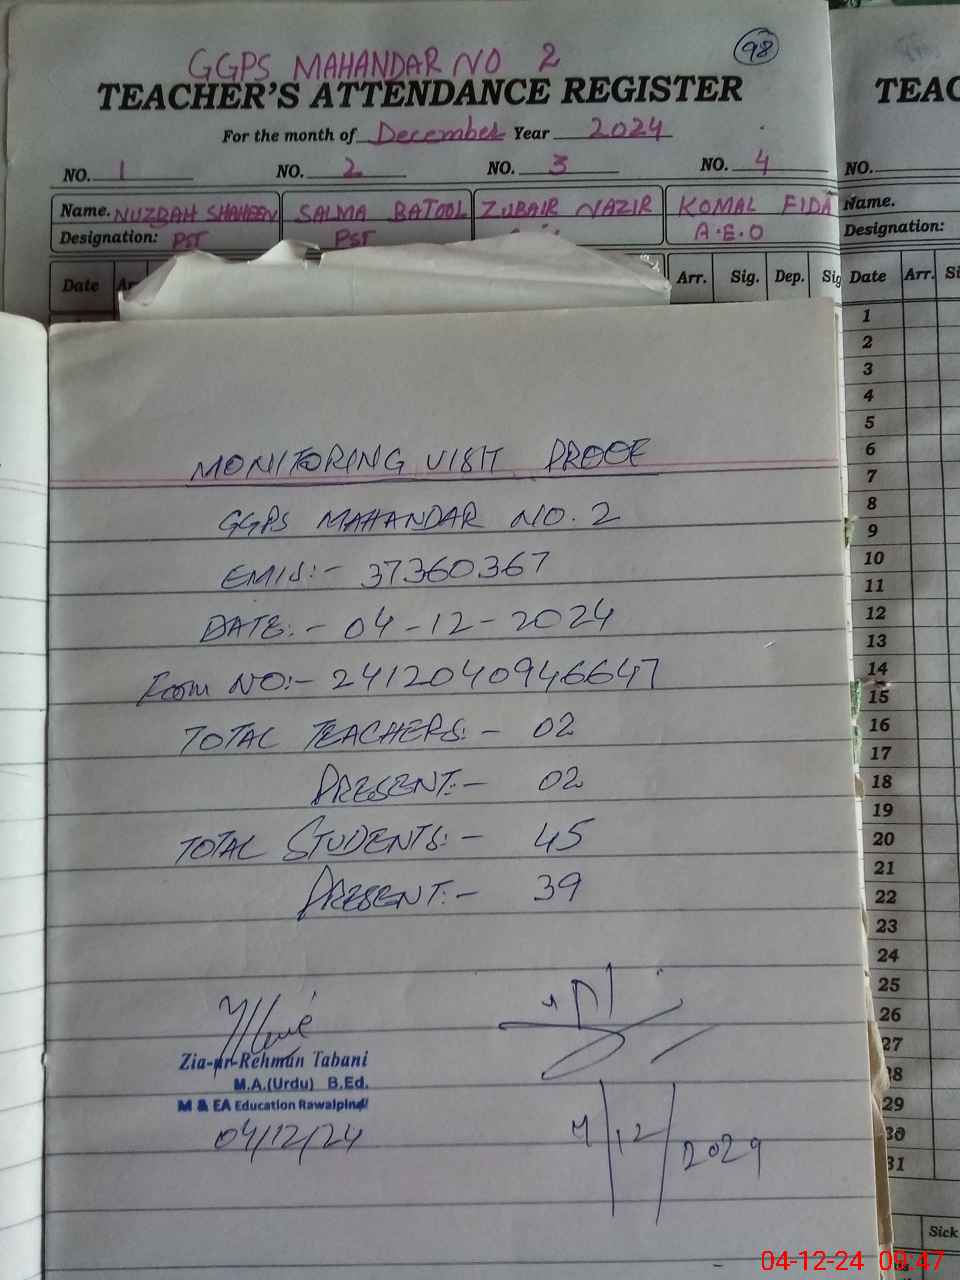 98
GGPS MAHANDAR NO 2
TEACHER'S ATTENDANCE REGISTER
For the month of December Year 2024
NO. 1 NO. 2 NO. 3 NO. 4
Name. NUZBAH SHAHEEN SALMA BATOOL ZUBAIR NAZIR KOMAL FIDA
Designation: PST PST A.E.O
Date Arr. Sig. Dep. Sig
TEAC
NO.
Name.
Designation:
Date Arr. Si
1
2
3
4
5
6
7
8
9
10
11
12
13
14
15
16
17
18
19
20
21
22
23
24
25
26
27
28
29
30
31
Sick
MONITORING VISIT PROOF
GGPS MAHANDAR NO. 2
EMIS:- 37360367
DATE:- 04-12-2024
Form NO:- 2412040946647
TOTAL TEACHERS:- 02
PRESENT:- 02
TOTAL STUDENTS:- 45
PRESENT:- 39
Zia-ur-Rehman Tabani
M.A.(Urdu) B.Ed.
M & EA Education Rawalpindi
04/12/24
4/12/2024
04-12-24 09:47